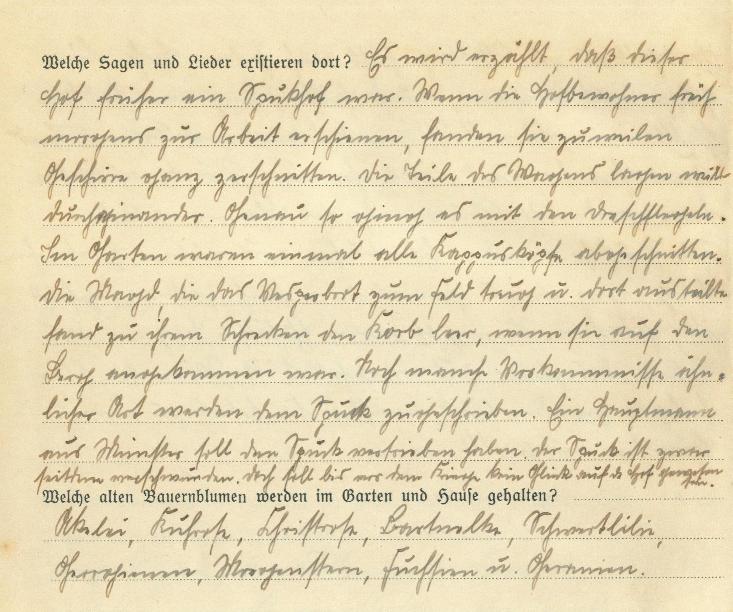 Welche Sagen und Lieder existieren dort? Es wird erzählt, daß dieser
Hof früher ein Spukhof war. Wenn die Hofbewohner früh
morgens zur Arbeit erschienen, fanden sie zuweilen
Geschirre ganz zerschnitten. Die Teile des Wagens lagen wild
durcheinander. Genau so ging es mit den Dreschflegeln.
Im Garten waren einmal alle Kappusköpfe abgeschnitten.
Die Magd, die das Vesperbrot zum Feld trug u. dort austeilte
fand zu ihrem Schrecken den Korb leer, wenn sie auf den
Berg angekommen war. Noch manche Vorkommnisse ähn-
licher Art werden dem Spuk zugeschrieben. Ein Hauptmann
aus Münster soll den Spuk vertrieben haben. Der Spuk ist zwar
seitdem verschwunden. Doch soll bis vor dem Kriege kein Glück auf d. Hof gewesen
sein.
Welche alten Bauernblumen werden im Garten und Hause gehalten?
Akelei, Kuhrose, Christrose, Bartnelke, Schwertlilie,
Georginen, Morgenstern, Fuchsien u. Geranien.